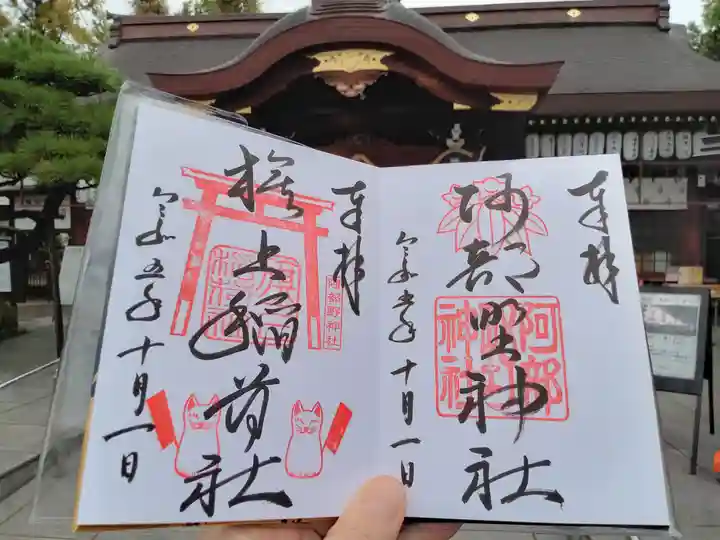 奉拝
阿部野神社
令和五年十月一日
阿部野神社
奉拝
上稲荷社
令和五年十月一日
阿部野神社